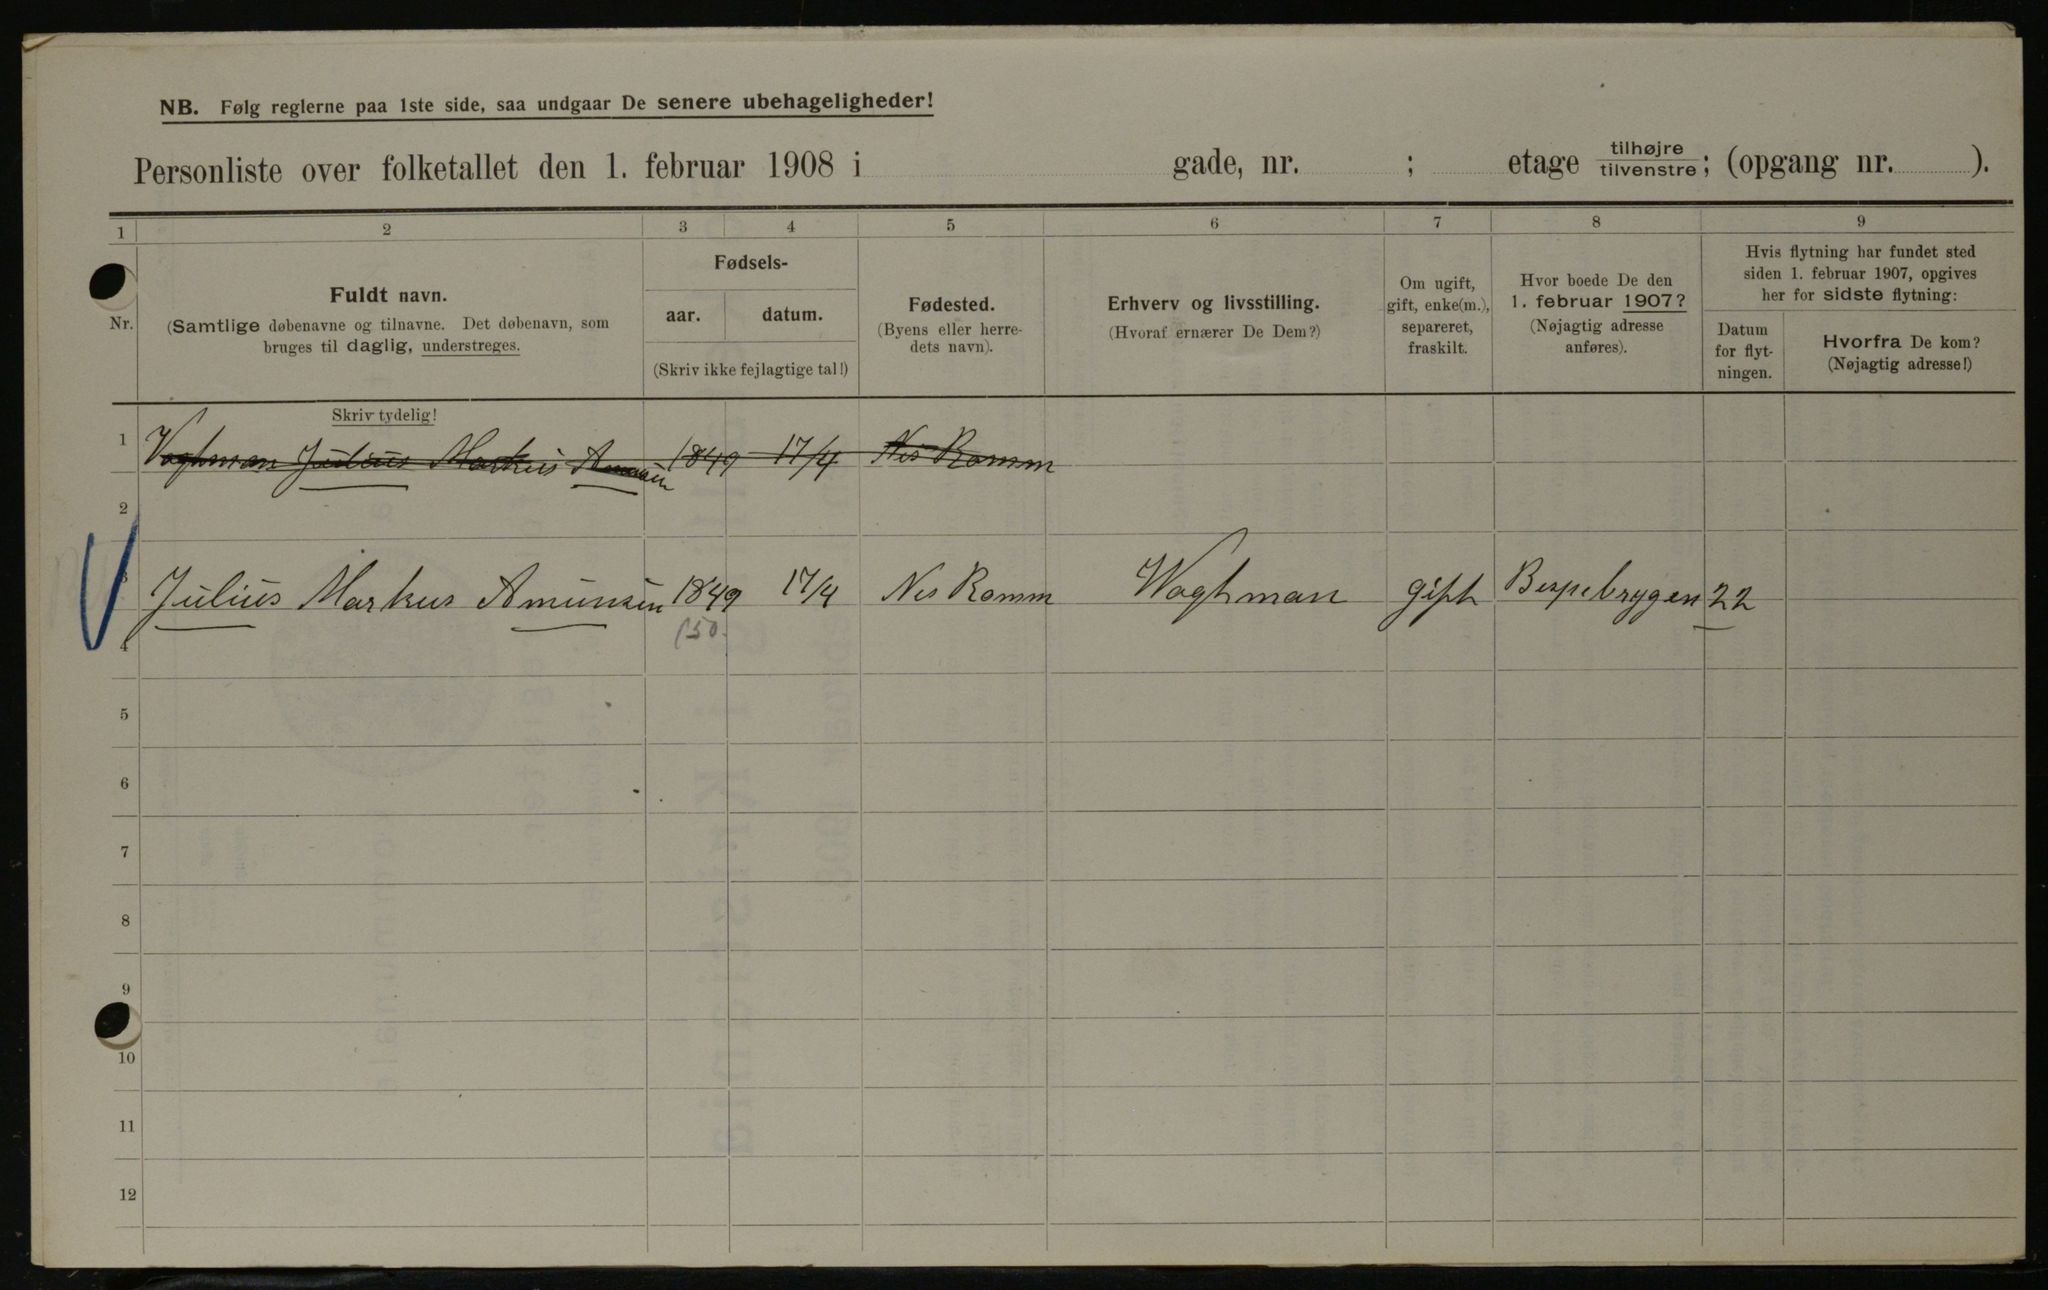 NB. Følg reglerne paa 1ste side, saa undgaar De senere ubehageligheder!
Personliste over folketallet den 1. februar 1908 i gade, nr. ; etage tilhøjre tilvenstre; (opgang nr. ).
1 2 3 4 5 6 7 8 9
Nr.
Fuldt navn.
(Samtlige døbenavne og tilnavne. Det døbenavn, som
bruges til daglig, understreges.
Fødsels-
aar. datum.
(Skriv ikke fejlagtige tal!)
Fødested.
(Byens eller herre-
dets navn).
Erhverv og livsstilling.
(Hvoraf ernærer De Dem?)
Om ugift,
gift, enke(m.),
separeret,
fraskilt.
Hvor boede De den
1. februar 1907?
(Nøjagtig adresse
anføres).
Hvis flytning har fundet sted
siden 1. februar 1907, opgives
her for sidste flytning:
Datum
for flyt-
ningen.
Hvorfra De kom?
(Nøjagtig adresse!)
Skriv tydelig!
1 Voghman Julius Markus Amunsin 1849 17/4 Nes Romm
2
3 Julius Markus Amunsin 1849 17/4 Nes Romm Waghman gift Bispebrygen 22
150.
4
5
6
7
8
9
10
11
12